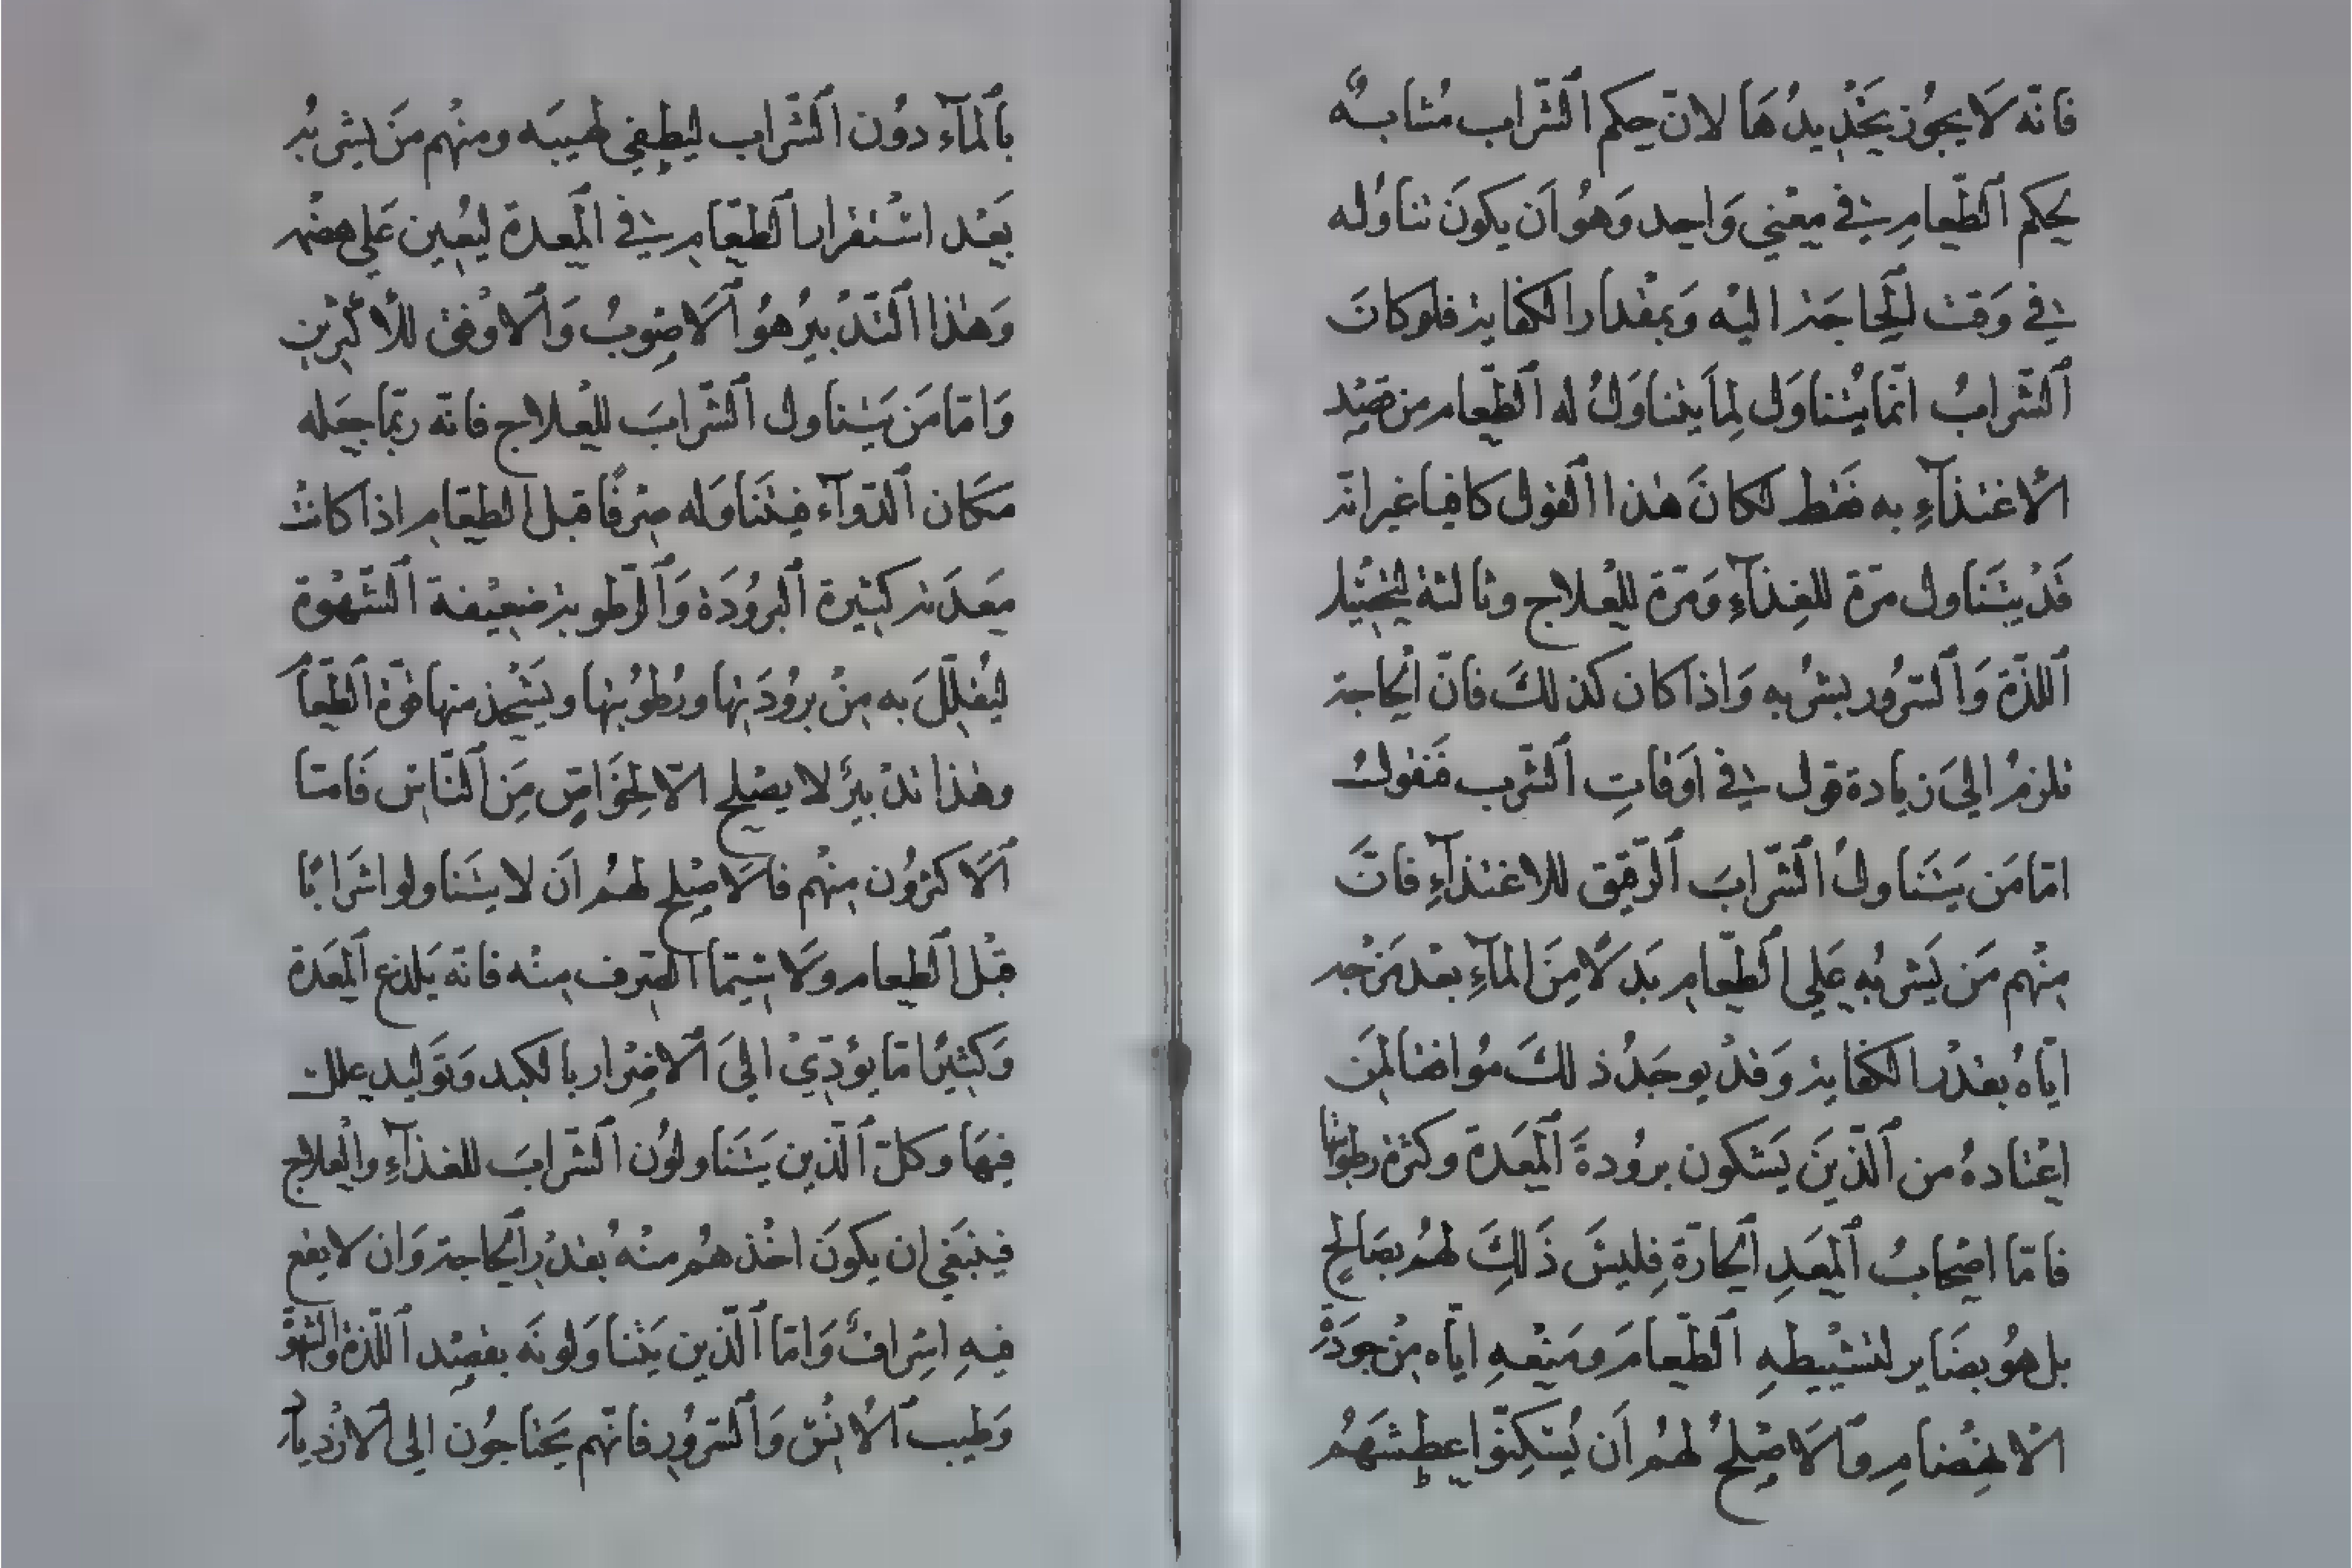 فانّه لَا يجُوز تَحْديدُهَا لانّ حكم ٱلشّراب مُشابهٌ
لحكم ٱلطّعامِ في معْنى وَاحد وَهُو اَن يكونَ تناوُله
في وَقت ٱلحاجة اليْه وَبمقْدار الكفاية فلو كانَ
ٱلشّرابُ انّما يُتناوَل لِما يتناوَلُ له ٱلطّعام من قصْد
ٱلاغتذآءِ به فقط لكانَ هٰذا ٱلقول كافيا غير انّه
قَدْ يتَناول مرّة للغِذآءِ وَمرّة للعْلاج وثالثة لتحْصيْل
ٱللذّة وَٱلسّرُور بشرْبه وَاذا كان كذلكَ فانّ ٱلحاجة
تلزمُ الىَ زيادة قول في اوَقاتِ ٱلشّرب فَنقولُ
امّا مَن يَتَناولُ ٱلشّرابَ ٱلرّقيق للاغتذآءِ فانّ
منْهم مَن يَشربُه عَلي ٱلطّعام بَدَلًا مِنَ المآءِ بعْد مَزْجه
ايّاه بقدْر الكفاية وَقدْ يوجَدُ ذلكَ مُوافقا لمن
اعْتادهُ من ٱلّذينَ يَشكون برُودةَ ٱلمَعَدة وكثرة رطوبتها
فامّا اصْحابُ ٱلمعَدِ ٱلحارّة فليسَ ذَلكَ لهُم بصَالح
بل هُو بضَاير لتنشْيطهِ ٱلطّعامَ ومَنْعهِ ايّاه منْ جودَة
ٱلانهضْامِ وٱلَاصْلحُ لهُم اَن يُسَكِنّوا عطشَهُم
بٱلمآء دوُن ٱلشّراب ليُطفي لهيبَه ومنْهم مَن يَشربُه
بَعْد اسْتقرار ٱلطّعَام في ٱلمَعدة ليُعين عَلي هضْمه
وَهٰذا ٱلتّدْبيرُ هوُ ٱلَاصْوبُ وَٱلاوْفق للأكثرين
وَامّا مَن يَتناول ٱلشّرابَ للعْلاج فانّه ربّما جعَله
مَكان ٱلدّوآء فيتَناوَله صرْفًا قبل الطعَام اذا كانتْ
معَدَته كثيرة ٱلبرُودَة وَٱلرّطوبة ضعيْفة ٱلشّهْوة
ليُقلِّلَ به منْ برُودَتها ورُطوُبتها ويَشْحذ منها قوّة ٱلطّعَام
وهٰذا تدْبيْرٌ لا يصْلح الّا لخَواصّ مِنَ ٱلنّاس فَامّا
ٱلَاكثرُون منْهم فٱلَاصْلح لهُم اَن لا يتَناولوا شَرابًا
قبْل ٱلطعام ولَا سَيّما ٱلصّرف منْه فانّه يَلدع ٱلمعَدة
وَكثيرًا مّا يوُدّيْ الىَ ٱلاضْرار بالكبد وَتَوليد علل
فيهَا وكلّ ٱلّذين يَتَناولوُن ٱلشّرابَ للغذآءِ والْعلاج
فينبَغي ان يكونَ اخْذهُم منْهُ بقدْر ٱلحاجة وَان لا يقع
فيهِ اسْرافٌ وَامّا ٱلّذين يَتناوَلونَه بقصْد ٱللّذة والشهْوَة
وَطيب ٱلانُسْ وَٱلسّرُور فانّهم يَحتاجُون الى ٱلازْدياد